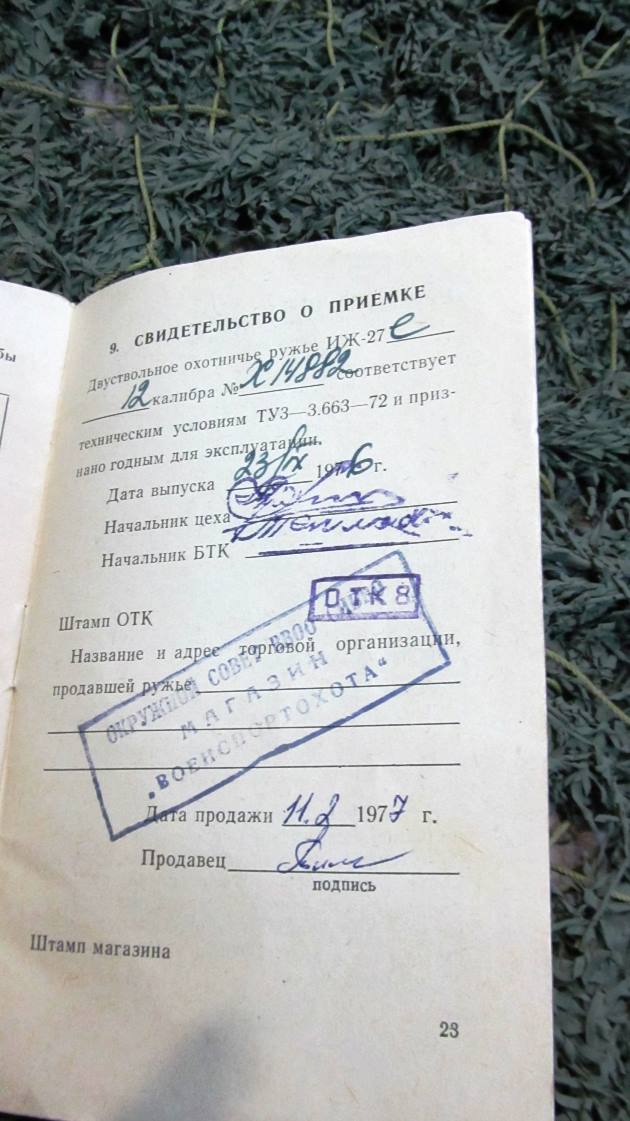 бы
9. СВИДЕТЕЛЬСТВО О ПРИЕМКЕ
Двуствольное охотничье ружье ИЖ-27 е
12 калибра № Х 14882 соответствует
техническим условиям ТУ3—3.663—72 и приз-
нано годным для эксплуатации.
Дата выпуска 23/IX 1976 г.
Начальник цеха
Начальник БТК
ОТК 8
Штамп ОТК
Название и адрес торговой организации,
продавшей ружье
ОКРУЖНОЙ СОВЕТ ВВОО
МАГАЗИН
„ВОЕНСПОРТОХОТА“
Дата продажи 11.2 1977 г.
Продавец
подпись
Штамп магазина
23